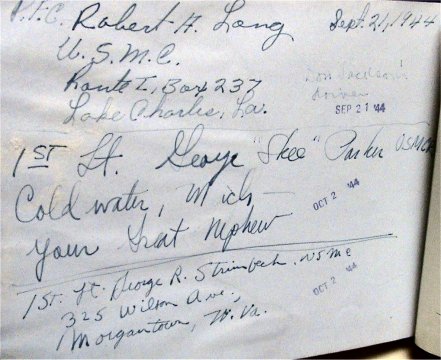 P.F.C. Robert H. Long Sept. 21, 1944
U.S.M.C.
Route 1, Box 237
Lake Charles, La.
driver
SEP 21 '44
1ST Lt. George "Skee" Parker USMCR
Coldwater, Mich -
OCT 2 '44
Your Great Nephew
1st. Lt. George R.
325 Wilson Ave.,
OCT 2 '44
Morgantown, W. Va.